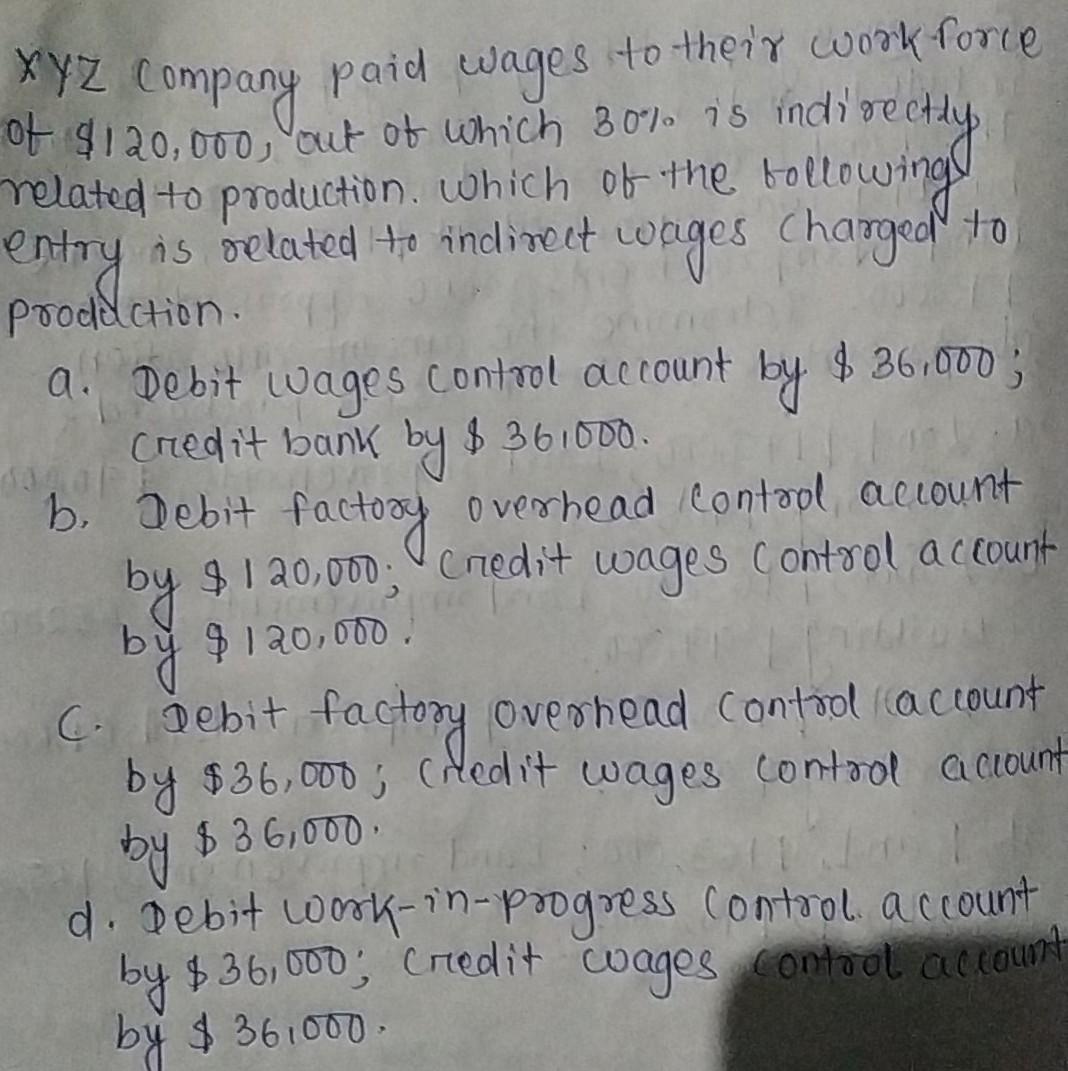 XYZ Company paid wages to their workforce
of $120,000, out of which 30% is indirectly
related to production. Which of the following
entry is related to indirect wages charged to
production.
a. Debit wages control account by $ 36,000;
credit bank by $ 36,000.
b. Debit factory overhead control account
by $120,000; credit wages control account
by $120,000.
c. Debit factory overhead control account
by $36,000; credit wages control account
by $36,000.
d. Debit work-in-progress control account
by $36,000; credit wages control account
by $ 36,000.